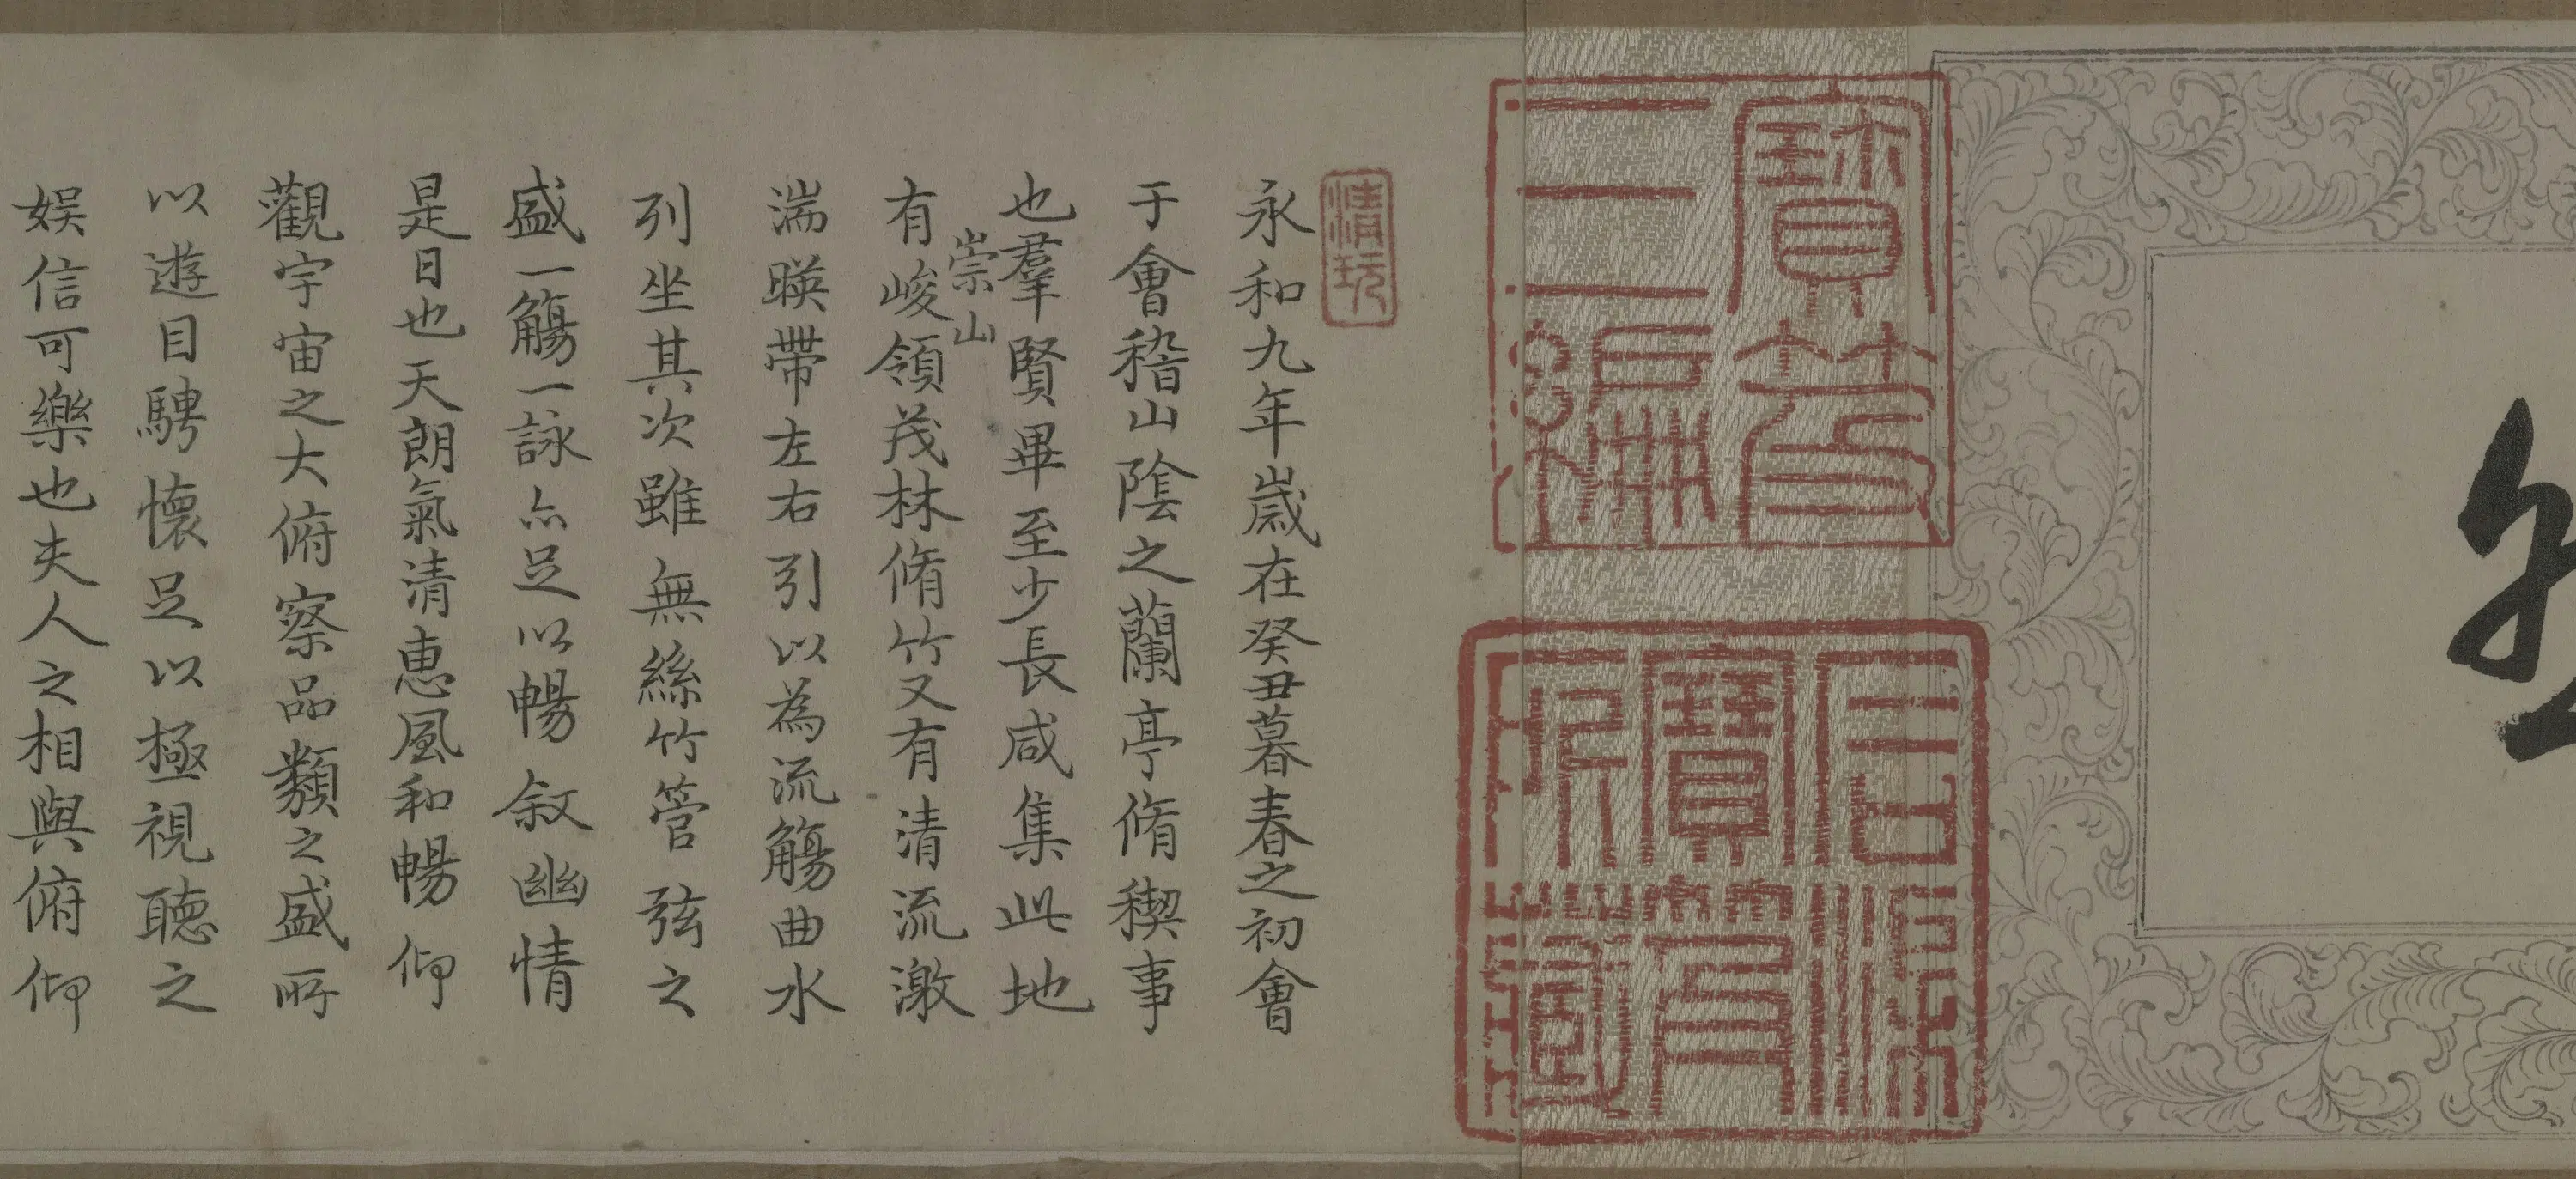 寶笈三編
石渠寶笈所藏
清玩
永和九年歲在癸丑暮春之初會
于會稽山陰之蘭亭脩稧事
也羣賢畢至少長咸集此地
崇山
有峻領茂林脩竹又有清流激
湍暎帶左右引以為流觴曲水
列坐其次雖無絲竹管弦之
盛一觴一詠亦足以暢叙幽情
是日也天朗氣清惠風和暢仰
觀宇宙之大俯察品類之盛所
以遊目騁懷足以極視聽之
娛信可樂也夫人之相與俯仰